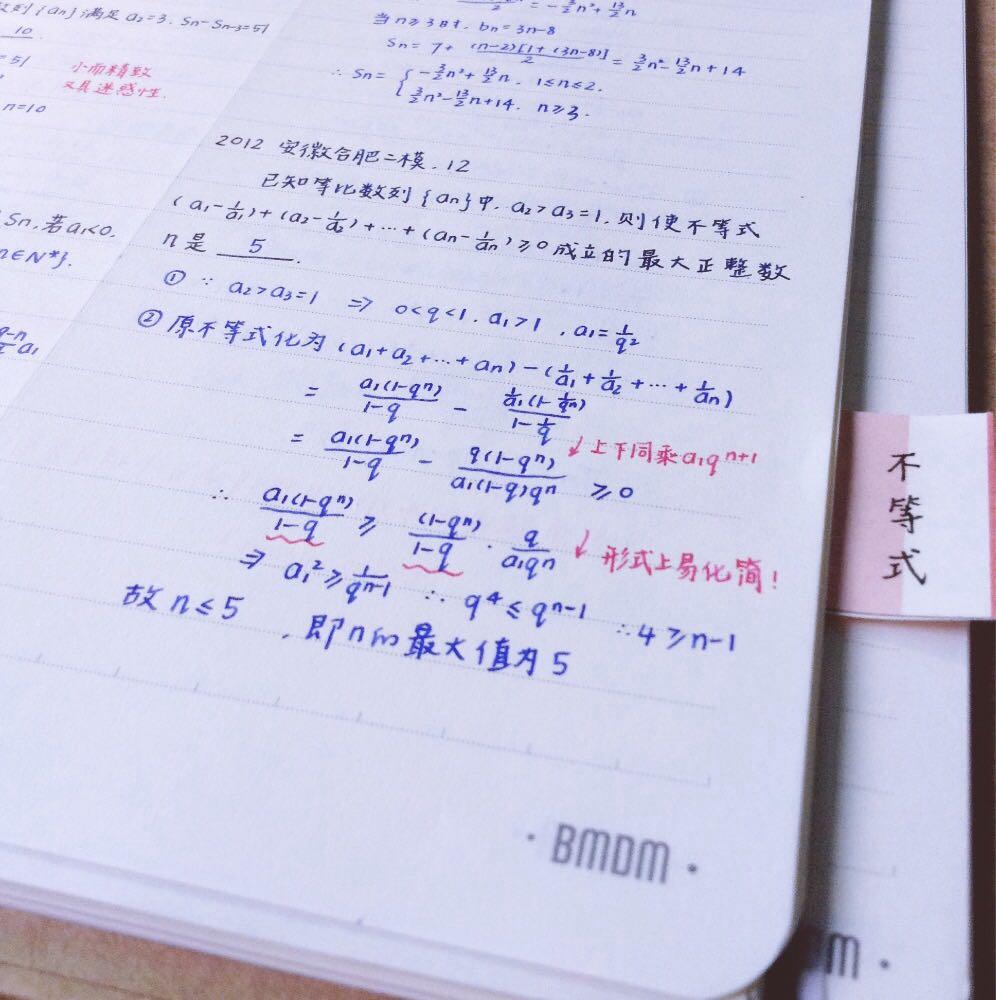 列{an}满足a₂=3. Sn-Sn-3=51
10
=51
小而精致
又具迷惑性.
n=10
Sn,若a₁<0,
n∈N*}.
a₁
2 = -3/2n²+13/2n
当n≥3时, bn=3n-8
Sn = 7+ (n-2)[1+(3n-8)]/2 = 3/2n²-13/2n+14
∴ Sn= { -3/2n²+13/2n, 1≤n≤2.
3/2n²-13/2n+14, n≥3.
2012 安徽合肥二模. 12
已知等比数列{an}中, a₂>a₃=1, 则使不等式
(a₁-1/a₁)+(a₂-1/a₂)+…+(an-1/an)≥0成立的最大正整数
n是 5 .
① ∵ a₂>a₃=1 ⇒ 0<q<1, a₁>1, a₁=1/q²
② 原不等式化为 (a₁+a₂+…+an)-(1/a₁+1/a₂+…+1/an)
= a₁(1-qⁿ)/1-q - 1/a₁(1-1/qⁿ)/1-1/q
↓上下同乘a₁qⁿ⁺¹
= a₁(1-qⁿ)/1-q - q(1-qⁿ)/a₁(1-q)qⁿ ≥0
∴ a₁(1-qⁿ)/1-q ≥ (1-qⁿ)/1-q · q/a₁qⁿ ↓形式上易化简!
⇒ a₁²≥1/qⁿ⁻¹ ∴ q⁴≤qⁿ⁻¹ ∴4≥n-1
故n≤5 , 即n的最大值为5
不等式
· BMDM ·
M ·